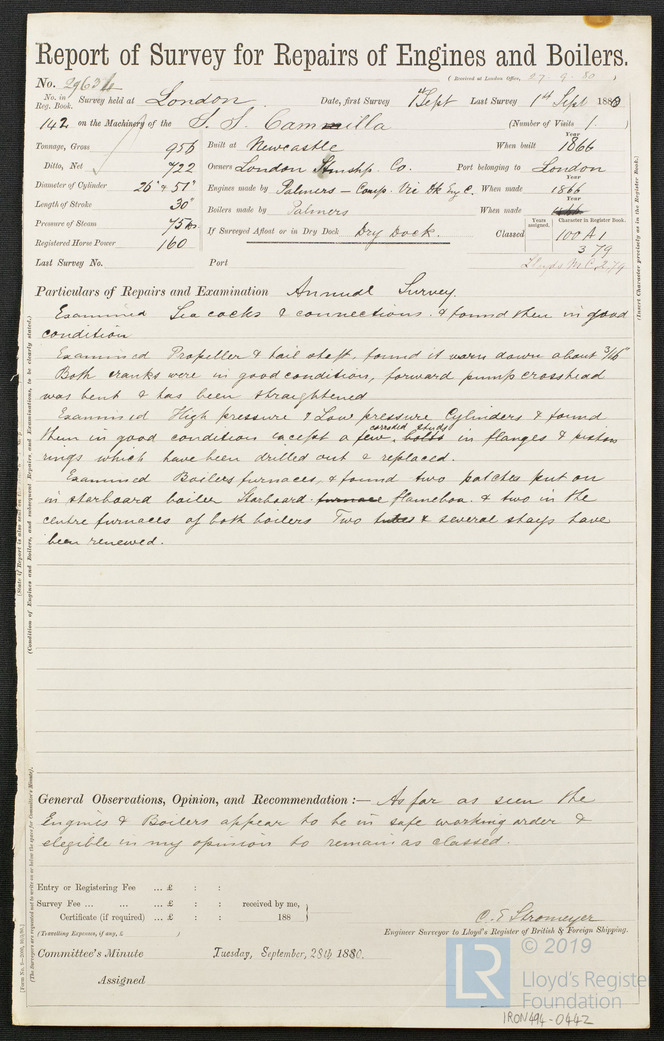 Report of Survey for Repairs of Engines and Boilers.
(Received at London Office, 27. 9. 80 )
No. 29634
No. in Reg. Book. Survey held at London. Date, first Survey 1st Sept Last Survey 1st Sept 1880
142 on the Machinery of the S. S. Cammilla (Number of Visits 1 )
Tonnage, Gross 956 Built at Newcastle When built Year 1866
Ditto, Net 722 Owners London Stmshp. Co. Port belonging to London
Diameter of Cylinder 26" & 51" Engines made by Palmers — Comp. When made Year 1866
Length of Stroke 30" Boilers made by Palmers When made Year 1866
Pressure of Steam 75 lbs If Surveyed Afloat or in Dry Dock Dry Dock. Classed Years assigned. Character in Register Book. 100 A 1
Registered Horse Power 160 3 79
Last Survey No. Port Lloyds M.C. 2.79
Particulars of Repairs and Examination Annual Survey.
Examined Sea cocks & connections. & found them in good
condition
Examined Propeller & tail shaft, found it worn down about 3/16"
Both cranks were in good condition, forward pump crosshead
was bent & has been straightened
Examined High pressure & Low pressure Cylinders & found
them in good condition except a few corroded studs bolts in flanges & piston
rings which have been drilled out & replaced.
Examined Boilers furnaces, & found two patches put on
in starboard boiler Starboard furnace flamebox. & two in the
centre furnaces of both boilers Two tubes & several stays have
been renewed.
General Observations, Opinion, and Recommendation :— As far as seen the
Engines & Boilers appear to be in safe working order &
elegible in my opinion to remain as classed.
Entry or Registering Fee ... £ : :
Survey Fee ... ... ... £ : : received by me,
Certificate (if required) ... £ : : 188
(Travelling Expenses, if any, £ )
C. E. Stromeyer
Engineer Surveyor to Lloyd's Register of British & Foreign Shipping.
Committee's Minute Tuesday, September, 28th 1880.
Assigned
(Insert Character precisely as in the Register Book.)
© 2019
LR
Lloyd's Register
Foundation
IRON494-0442